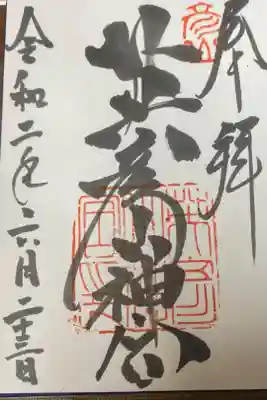 奉拝
英彦山神宮
令和二年六月二十三日